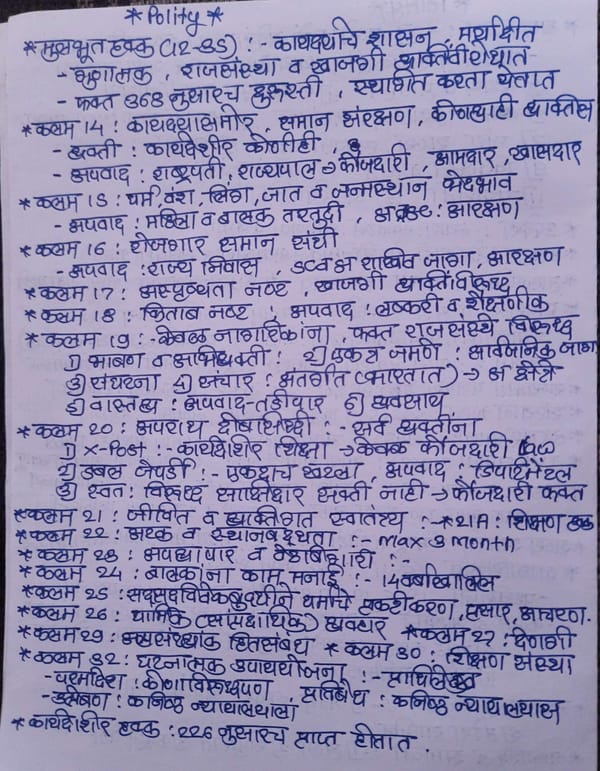 * Polity *
* मुलभूत हक्क (12-35) :- कायद्याचे शासन, मर्यादीत
- गुणात्मक, राजसंस्था व खाजगी व्यक्तिंविरोधात
- फक्त 368 नुसारच दुरुस्ती, स्थगित करता येतात
* कलम 14 : कायद्यासमोर, समान संरक्षण, कोणत्याही व्यक्तीस
- व्यक्ती : कायदेशीर कोणीही
- अपवाद : राष्ट्रपती, राज्यपाल → फौजदारी, आमदार, खासदार
* कलम 15 : धर्म, वंश, लिंग, जात व जन्मस्थान भेदभाव
- अपवाद : महिला व बालक तरतुदी, आरक्षण
* कलम 16 : रोजगार समान संधी
- अपवाद : राज्य निवास, राखीव जागा, आरक्षण
* कलम 17 : अस्पृश्यता नष्ट, खाजगी व्यक्तिंविरुध्द
* कलम 18 : किताब नष्ट, अपवाद : लष्करी व शैक्षणीक
* कलम 19 :- केवळ नागरिकांना, फक्त राजसंस्थे विरुध्द
1) भाषण व अभिव्यक्ती : 2) एकत्र जमणे : सार्वजनिक जागा
3) संघटना 4) संचार : अंतर्गत (भारतात) →
5) वास्तव्य : अपवाद-तडीपार 6) व्यवसाय
* कलम 20 : अपराध दोषसिध्दी :- सर्व व्यक्तींना
1) X-Post :- कायदेशीर शिक्षा → केवळ फौजदारी
2) डबल जेपर्डी :- एकदाच खटला, अपवाद : डिपार्टमेंटल
3) स्वत: विरुध्द साक्षिदार सक्ती नाही → फौजदारी फक्त
* कलम 21 : जीवित व व्यक्तिगत स्वातंत्र्य :- * 21A : शिक्षण हक्क
* कलम 22 : अटक व स्थानबध्दता :- max 3 month
* कलम 23 : अपव्यापार व वेठबिगारी :-
* कलम 24 : बालकांना काम मनाई :- 14 वर्षाखालिल
* कलम 25 : सद्सद्विवेकबुध्दीने धर्माचे प्रकटीकरण, प्रसार, आचरण.
* कलम 26 : धार्मिक (सांप्रदायिक) व्यवहार * कलम 27 : देणगी
* कलम 29 : अल्पसंख्यांक हितसंबंध * कलम 30 : शिक्षण संस्था
* कलम 32 : घटनात्मक उपाययोजना :- प्राधिलेख
- परमादेश : कोणाविरुध्दपण प्रतिषेध : कनिष्ठ न्यायालयास
- उत्प्रेषण : कनिष्ठ न्यायालयाला
* कायदेशीर हक्क : 226 नुसारच प्राप्त होतात.